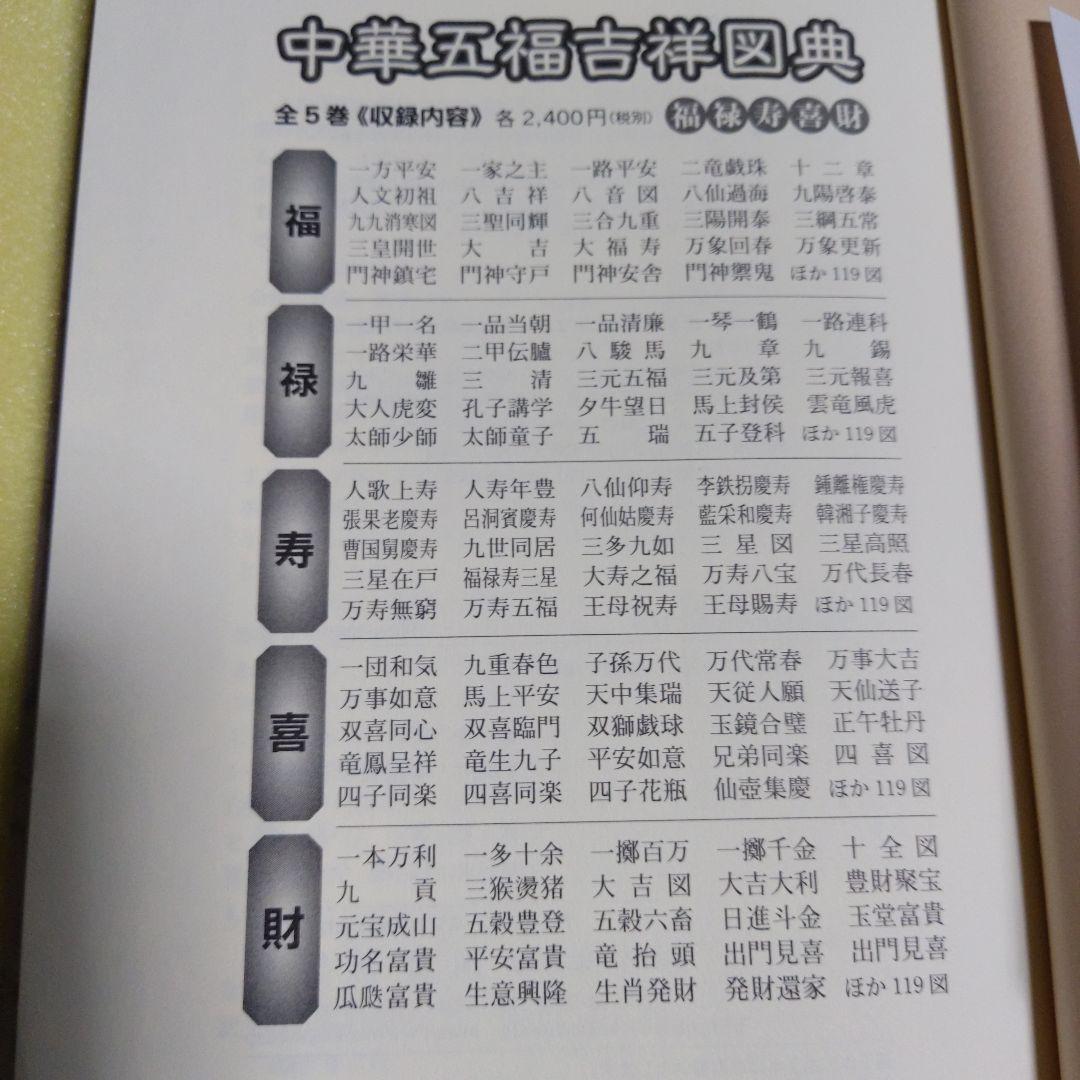 中華五福吉祥図典
全5巻《収録内容》 各2,400円(税別) 福禄寿喜財
福
一方平安 一家之主 一路平安 二竜戯珠 十二章
人文初祖 八吉祥 八音図 八仙過海 九陽啓泰
九九消寒図 三聖同輝 三合九重 三陽開泰 三綱五常
三皇開世 大吉 大福寿 万象回春 万象更新
門神鎮宅 門神守戸 門神安舎 門神禦鬼 ほか119図
禄
一甲一名 一品当朝 一品清廉 一琴一鶴 一路連科
一路栄華 二甲伝臚 八駿馬 九章 九錫
九雛 三清 三元五福 三元及第 三元報喜
大人虎変 孔子講学 夕牛望日 馬上封侯 雲竜風虎
太師少師 太師童子 五瑞 五子登科 ほか119図
寿
人歌上寿 人寿年豊 八仙仰寿 李鉄拐慶寿 鍾離権慶寿
張果老慶寿 呂洞賓慶寿 何仙姑慶寿 藍采和慶寿 韓湘子慶寿
曹国舅慶寿 九世同居 三多九如 三星図 三星高照
三星在戸 福禄寿三星 大寿之福 万寿八宝 万代長春
万寿無窮 万寿五福 王母祝寿 王母賜寿 ほか119図
喜
一団和気 九重春色 子孫万代 万代常春 万事大吉
万事如意 馬上平安 天中集瑞 天従人願 天仙送子
双喜同心 双喜臨門 双獅戯球 玉鏡合璧 正午牡丹
竜鳳呈祥 竜生九子 平安如意 兄弟同楽 四喜図
四子同楽 四喜同楽 四子花瓶 仙壺集慶 ほか119図
財
一本万利 一多十余 一擲百万 一擲千金 十全図
九貢 三猴燙猪 大吉図 大吉大利 豊財聚宝
元宝成山 五穀豊登 五穀六畜 日進斗金 玉堂富貴
功名富貴 平安富貴 竜抬頭 出門見喜 出門見喜
瓜瓞富貴 生意興隆 生肖発財 発財還家 ほか119図